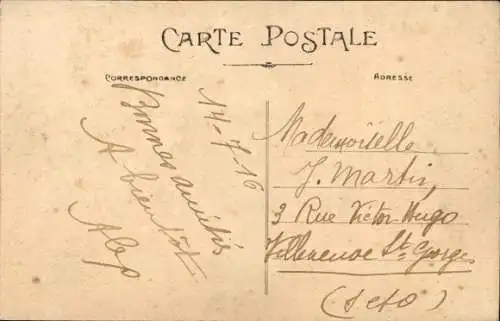 CARTE POSTALE
CORRESPONDANCE
ADRESSE
14-7-16
Bonnes amitiés
A bientôt
Mademoiselle
J. Martin,
3 Rue Victor Hugo
Villeneuve St. Georges
(S et O)